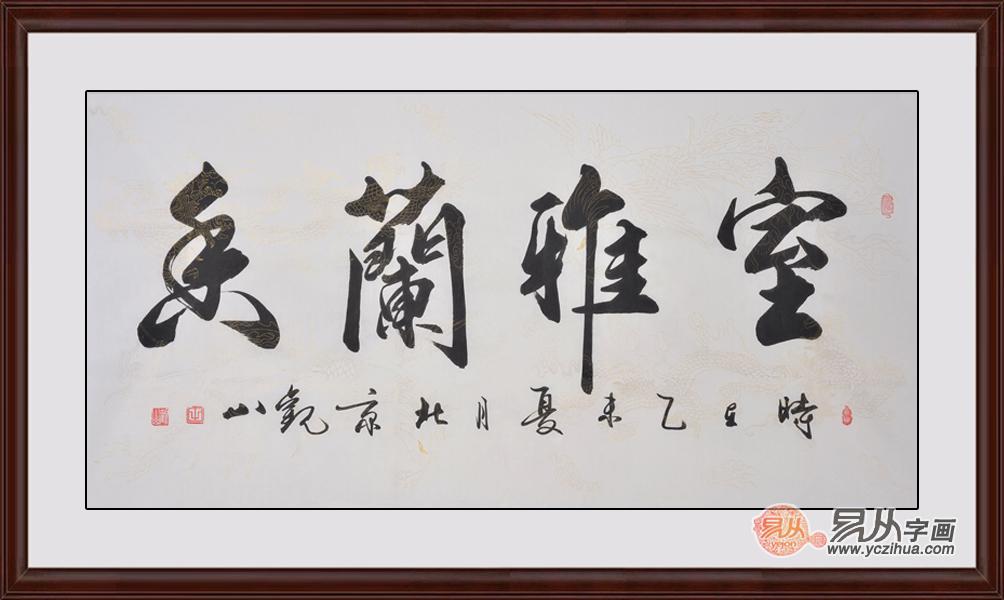 室雅蘭香
時在乙未夏月北京觀山
易从
易从字画
www.yczihua.com